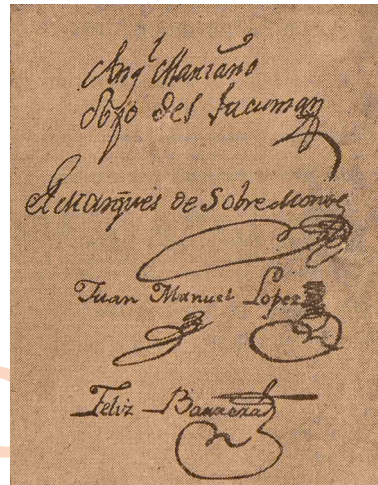 Angl Mariano
Obpo del Tucuman
El Marques de Sobre Monte
Juan Manuel Lopez
Feliz